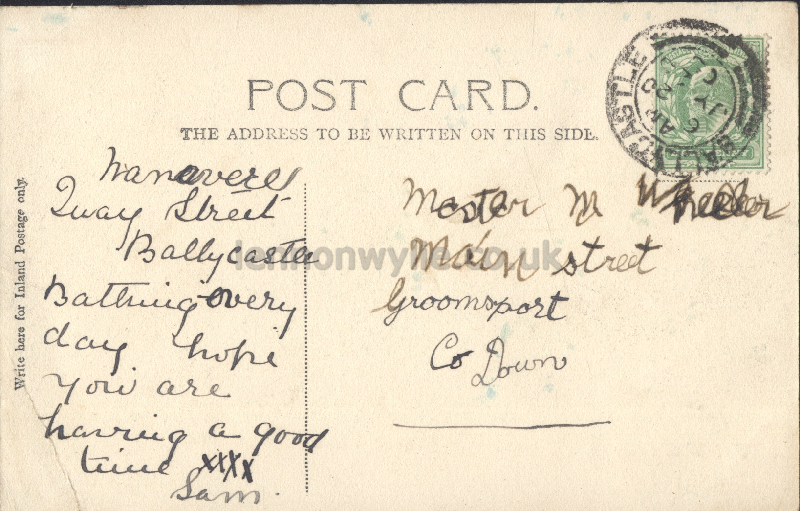 POST CARD.
THE ADDRESS TO BE WRITTEN ON THIS SIDE.
Write here for Inland Postage only.
Quay Street
Ballycastle
Bathing every
day hope
you are
having a good
time xxxx
Sam.
Master M Wheeler
Main street
Groomsport
Co Down
BALLYCASTLE
lennonwylie.co.uk